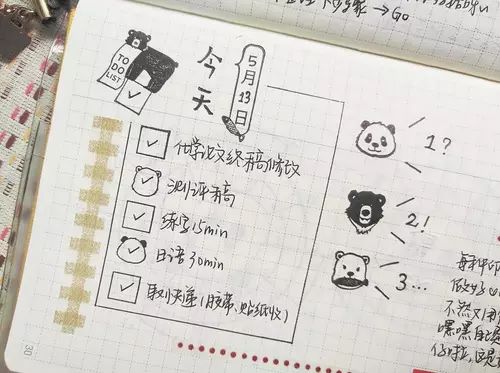 →Go
TO
DO
LIST
今天
5月13日
化学论文终稿修改
测评稿
练字15min
日语30min
取快递(胶带、贴纸收)
1?
2!
3...
做好
不然又
嘿嘿自
30